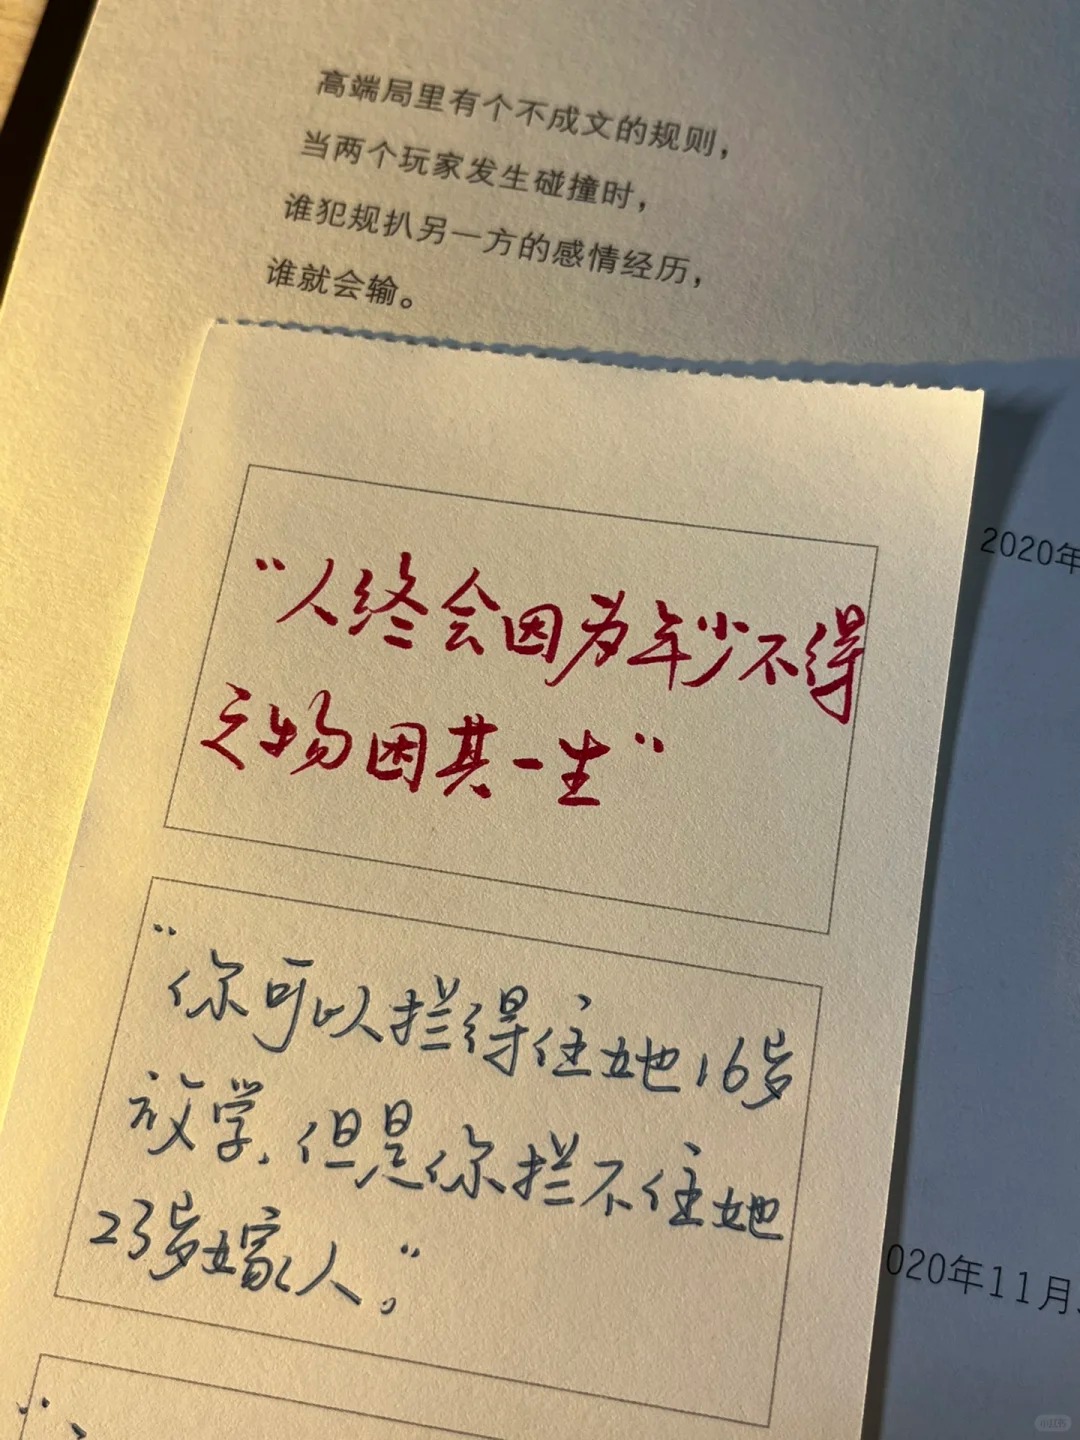 高端局里有个不成文的规则，
当两个玩家发生碰撞时，
谁犯规扒另一方的感情经历，
谁就会输。
2020年
“人终会因为年少不得
之物困其一生”
“你可以拦得住她16岁
放学，但是你拦不住她
23岁嫁人。”
020年11月
小红书